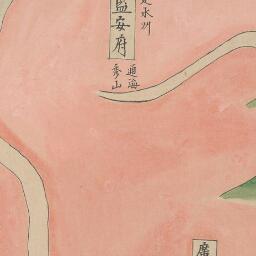 水州
臨安府
通海
秀山
廣